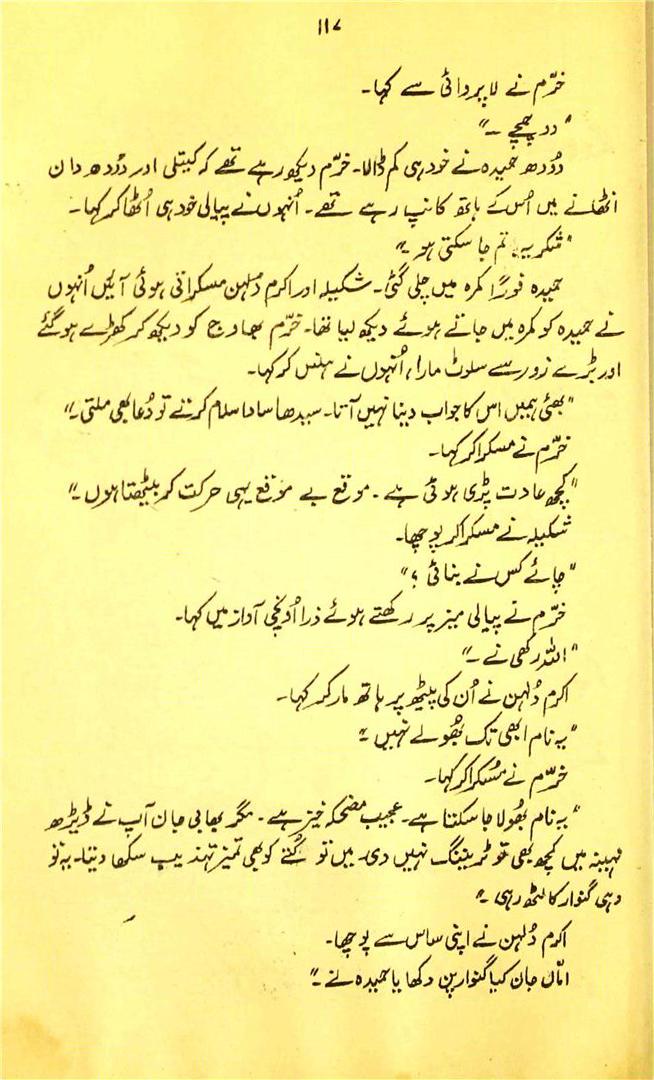 ۱۱۷
خرّم نے لاپروائی سے کہا۔
"دو چمچے ۔"
دُودھ حمیدہ نے خود ہی کم ڈالا۔ خرّم دیکھ رہے تھے کہ کیتلی اور دُودھ دان
اٹھانے میں اُس کے ہاتھ کانپ رہے تھے۔ اُنہوں نے پیالی خود ہی اُٹھا کر کہا۔
"شکریہ، تم جا سکتی ہو ۔"
حمیدہ فورًا کمرہ میں چلی گئی۔ شکیلہ اور اکرم دُلہن مسکراتی ہوئی آئیں اُنہوں
نے حمیدہ کو کمرہ میں جاتے ہوئے دیکھ لیا تھا۔ خرّم بھاوج کو دیکھ کر کھڑے ہو گئے
اور بڑے زور سے سلوٹ مارا، اُنہوں نے ہنس کر کہا۔
"بھئی ہمیں اس کا جواب دینا نہیں آتا۔ سیدھا سادا سلام کرتے تو دُعا بھی ملتی۔"
خرّم نے مسکرا کر کہا۔
"کچھ عادت پڑی ہوئی ہے ۔ موقع بے موقع یہی حرکت کر بیٹھتا ہوں ۔"
شکیلہ نے مسکرا کر پوچھا۔
"چائے کس نے بنائی ؟"
خرّم نے پیالی میز پر رکھتے ہوئے ذرا اُونچی آواز میں کہا۔
"اللہ رکھی نے ۔"
اکرم دُلہن نے اُن کی پیٹھ پر ہاتھ مار کر کہا۔
"یہ نام ابھی تک بھُولے نہیں ۔"
خرّم نے مُسکرا کر کہا۔
"یہ نام بھُولا جا سکتا ہے۔ عجیب مضحکہ خیز ہے ۔ مگر بھابی جان آپ نے ڈیڑھ
مہینہ میں کچھ بھی تو ٹریننگ نہیں دی۔ میں تو کُتے کو بھی تمیز تہذیب سکھا دیتا۔ یہ تو
وہی گنوار کا لٹھ رہی ۔"
اکرم دُلہن نے اپنی ساس سے پوچھا۔
امّاں جان کیا گنوارپن دکھایا حمیدہ نے ۔"